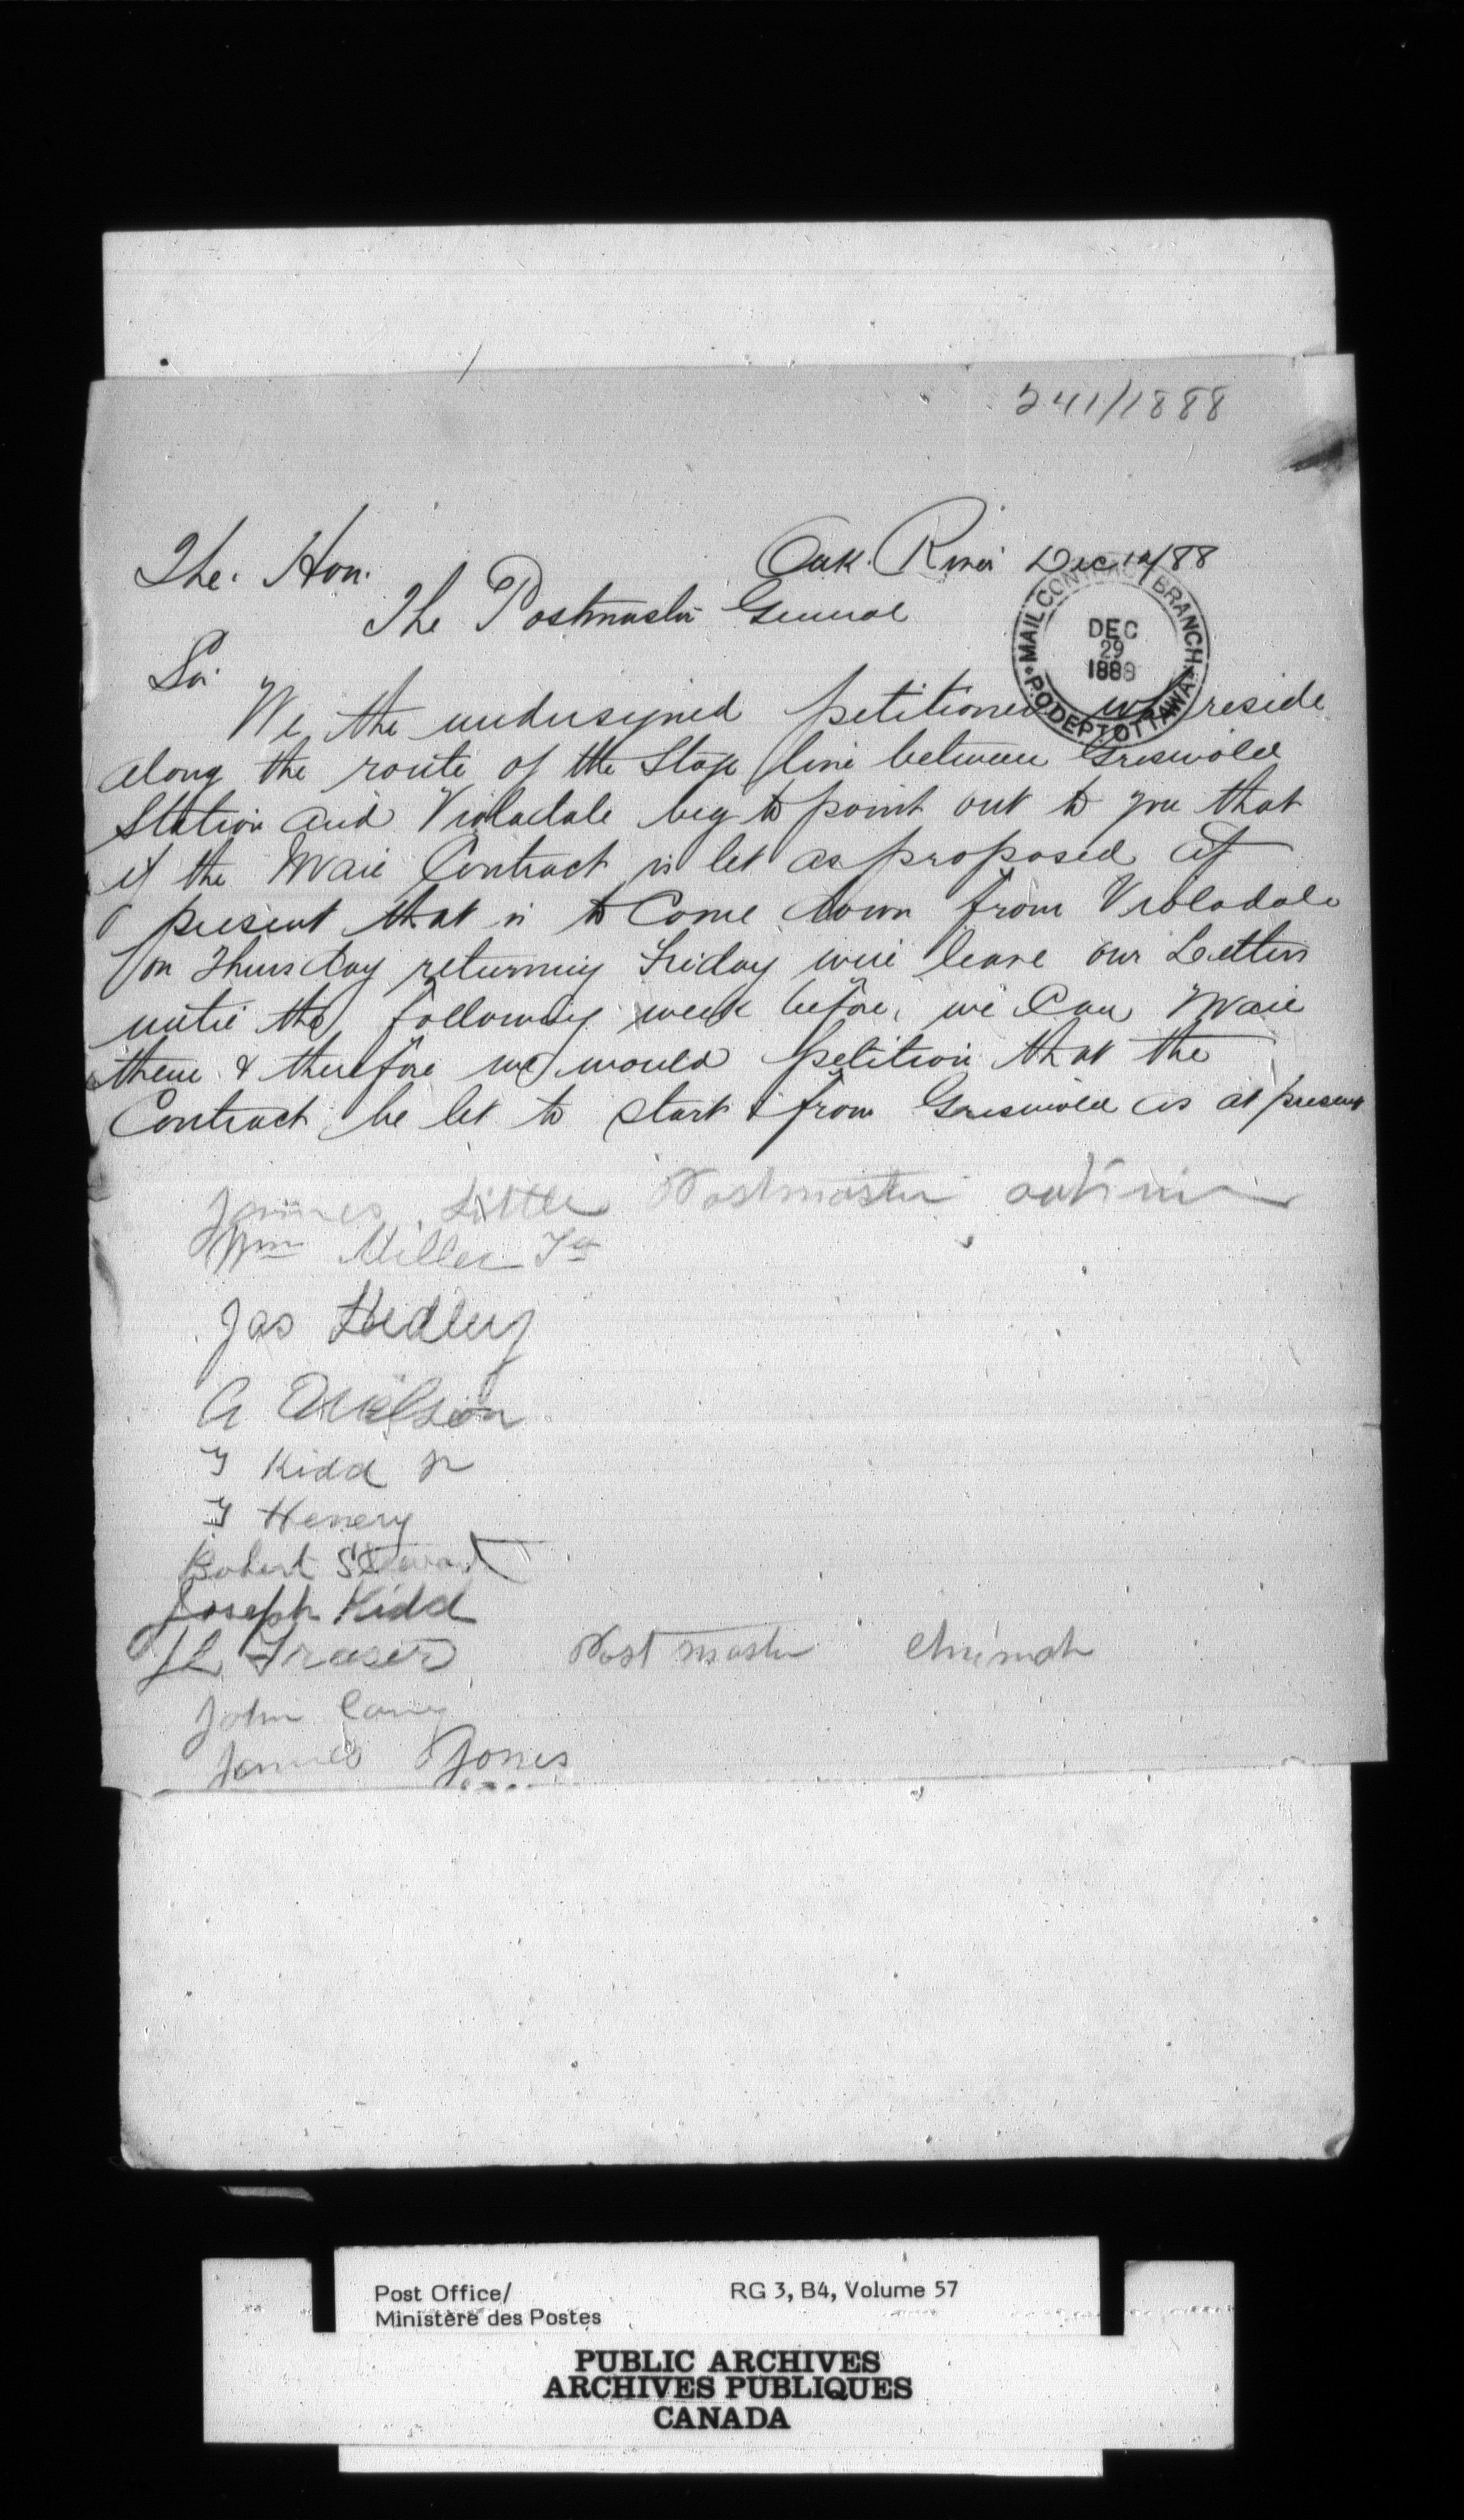 241/1888
Oak River Dec 14/88
The Hon.
The Postmaster General
MAIL CONTRACT BRANCH
DEC
29
1888
P.O. DEPT. OTTAWA
Sir
We the undersigned petitioners who reside
along the route of the Stage line between Griswold
Station and Violadale beg to point out to you that
if the Mail Contract is let as proposed at
present that is to Come down from Violadale
on Thursday returning Friday will leave our Letters
until the following week before we Can Mail
them & therefore we would petition that the
Contract be let to start from Griswold as at present
James Little Postmaster
Wm Miller
Jas Hedley
A
T Kidd Jr
T Henery
Robert Stewart
Joseph Kidd
Fraser Post master
John
James Jones
Post Office/
Ministère des Postes
RG 3, B4, Volume 57
PUBLIC ARCHIVES
ARCHIVES PUBLIQUES
CANADA